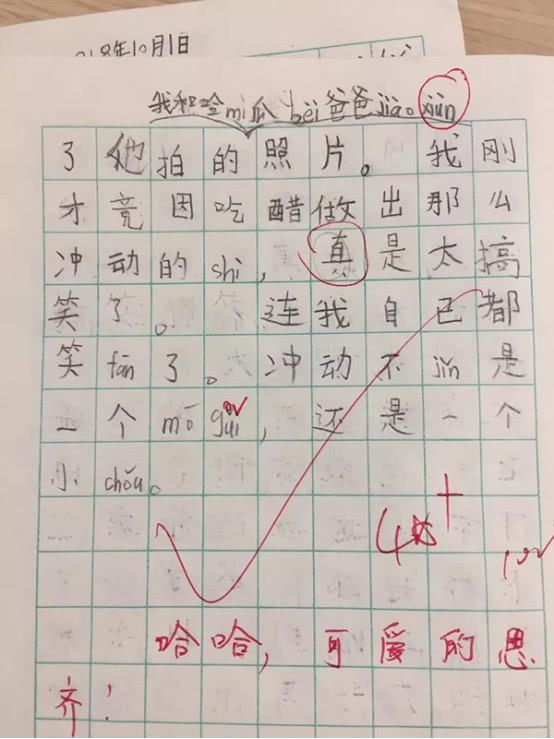 18年10月1日
我和哈mi瓜 bèi爸爸jiao。xùn
了他拍的照片。 我刚
才竟因吃醋做出那么
冲动的shi，真是太搞
笑了。 连我自己都
笑fān了。冲动不jǐn是
一个mō guǐ，还是一个
小chǒu。
4☆+
哈哈，可爱的思
齐！